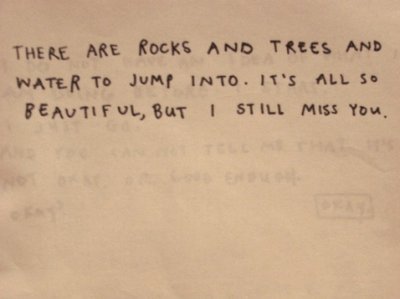 THERE ARE ROCKS AND TREES AND
WATER TO JUMP INTO. IT'S ALL SO
BEAUTIFUL, BUT I STILL MISS YOU.
AND YOU CAN NOT TELL ME THAT IT'S
NOT OKAY OR GOOD ENOUGH.
OKAY?
OKAY.